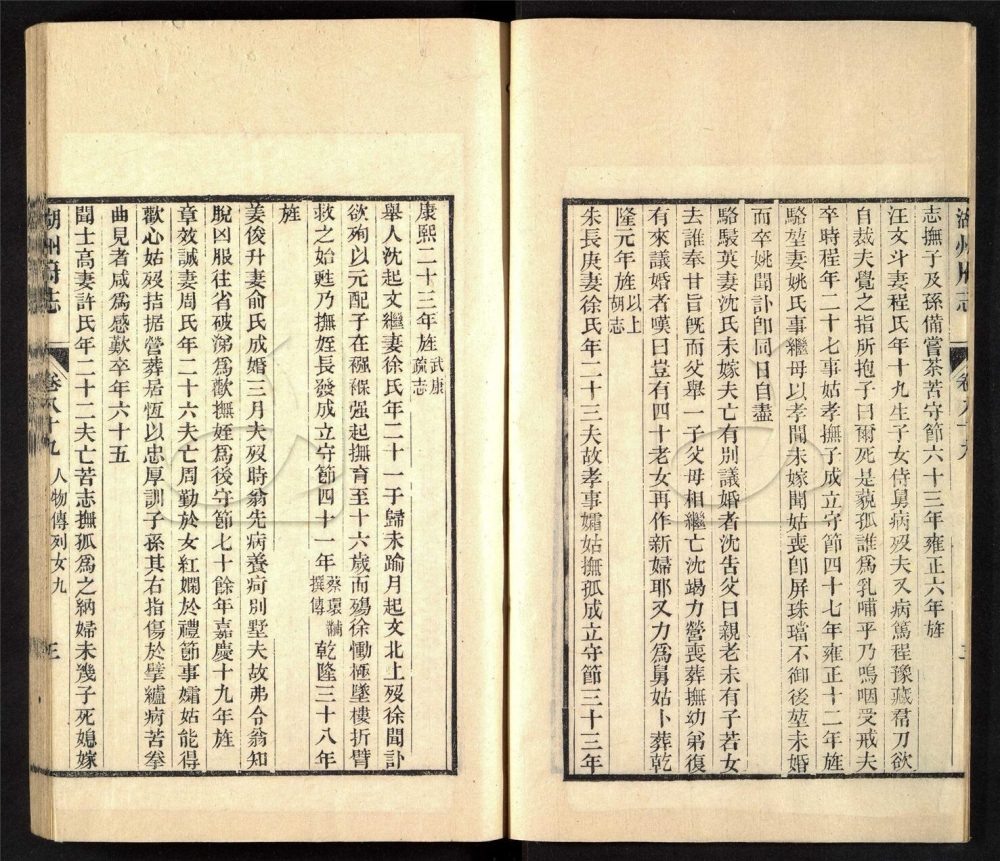 湖州府志
卷八十九
三
志撫子及孫備嘗荼苦守節六十三年雍正六年旌
汪文斗妻程氏年十九生子女侍舅病歿夫又病篤程豫藏帬刀欲
自裁夫覺之指所抱子曰爾死是藐孤誰為乳哺乎乃嗚咽受戒夫
卒時程年二十七事姑孝撫子成立守節四十七年雍正十二年旌
駱堃妻姚氏事繼母以孝聞未嫁聞姑喪卽屏珠璫不御後堃未婚
而卒姚聞訃卽同日自盡
駱駸英妻沈氏未嫁夫亡有別議婚者沈告父曰親老未有子若女
去誰奉甘旨旣而父舉一子父母相繼亡沈竭力營喪葬撫幼弟復
有來議婚者嘆曰豈有四十老女再作新婦耶又力為舅姑卜葬乾
隆元年旌以上胡志
朱長庚妻徐氏年二十三夫故孝事孀姑撫孤成立守節三十三年
康熙二十三年旌武康疏志
舉人沈起文繼妻徐氏年二十一于歸未踰月起文北上歿徐聞訃
欲殉以元配子在襁褓强起撫育至十六歲而殤徐慟極墜樓折臂
救之始甦乃撫姪長發成立守節四十一年蔡環黼撰傳乾隆三十八年
旌
姜俊升妻俞氏成婚三月夫歿時翁先病養疴別墅夫故弗令翁知
脫凶服往省破涕爲歡撫姪爲後守節七十餘年嘉慶十九年旌
章效誠妻周氏年二十六夫亡周勤於女紅嫻於禮節事孀姑能得
歡心姑歿拮据營葬居恆以忠厚訓子孫其右指傷於擘纑病苦拳
曲見者咸爲感歎卒年六十五
聞士高妻許氏年二十二夫亡苦志撫孤爲之納婦未幾子死媳嫁
湖州府志
卷八十九 人物傳列女九
三